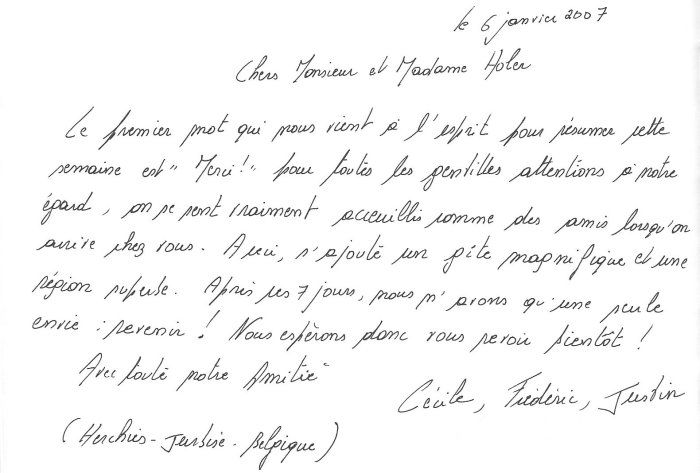 le 6 janvier 2007
Chers Monsieur et Madame Holer
Le premier mot qui nous vient à l'esprit pour résumer cette
semaine est " Merci ! " pour toutes les gentilles attentions à notre
égard, on se sent vraiment accueillis comme des amis lorsqu'on
arrive chez vous. A ceci, s'ajoute un gîte magnifique et une
région superbe. Après ces 7 jours, nous n'avons qu'une seule
envie : revenir ! Nous espérons donc vous revoir bientôt !
Avec toute notre Amitié
Cécile, Frédéric, Justin
(Herchies - Jurbise - Belgique)